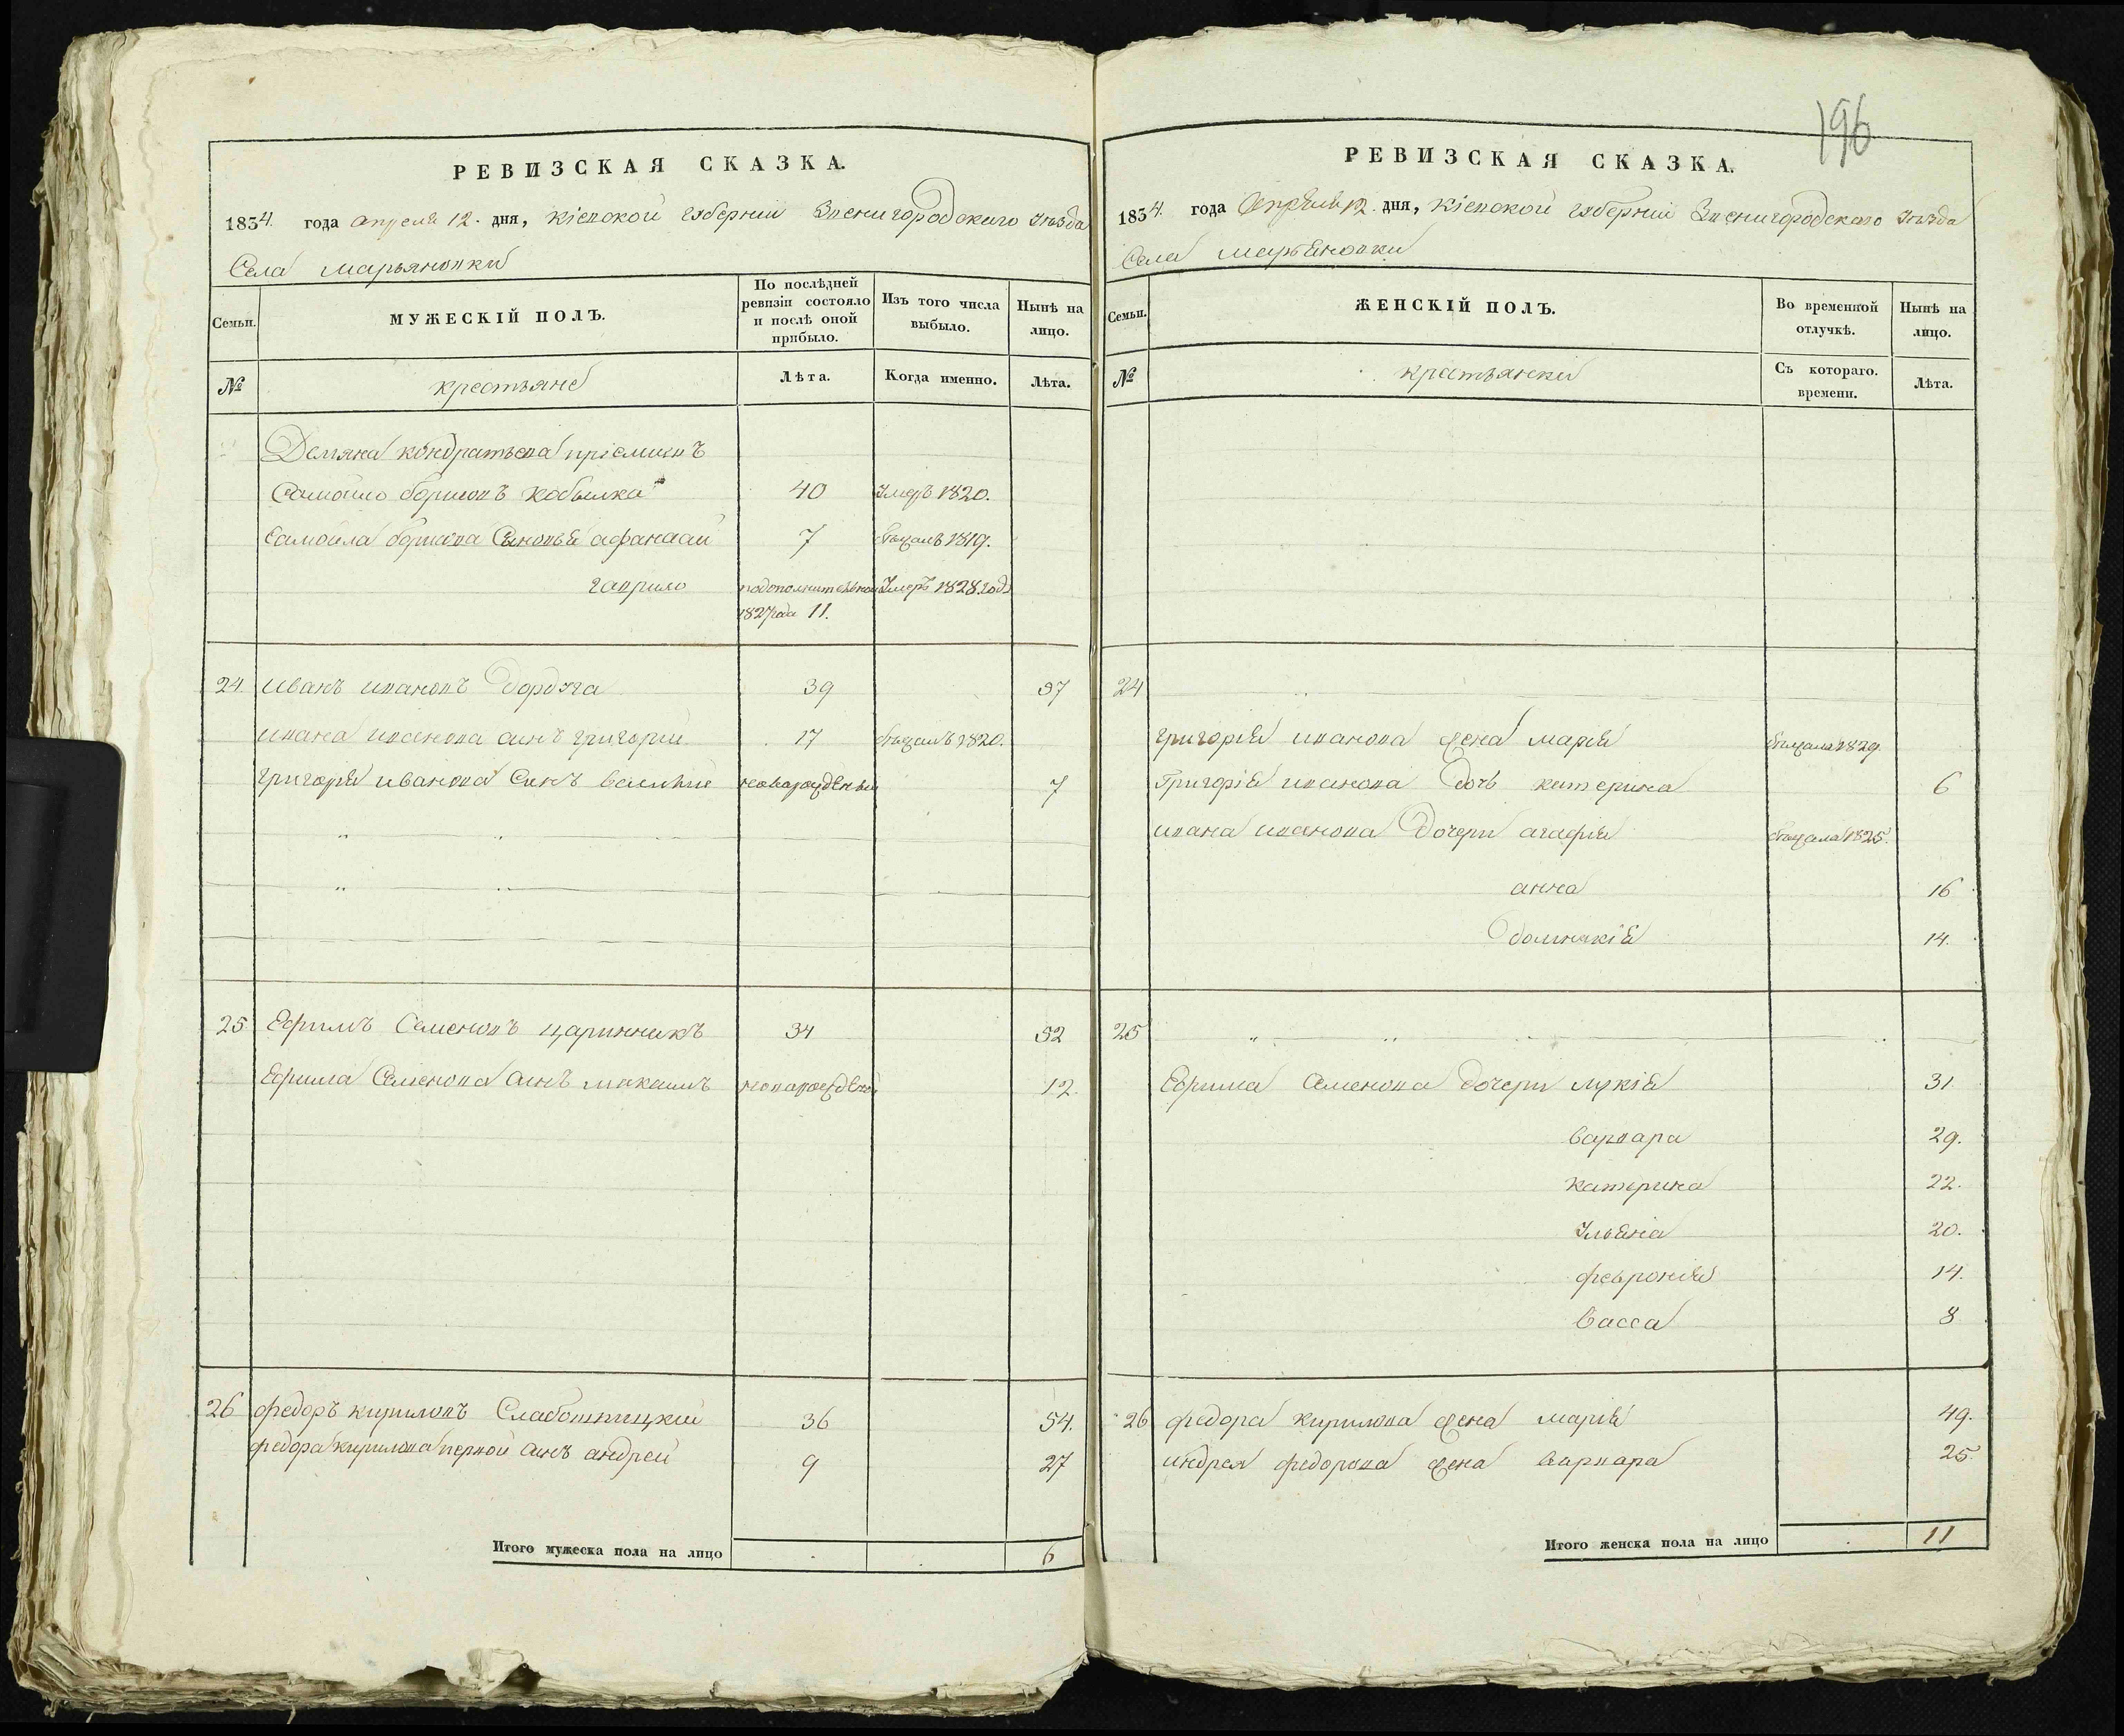 196
РЕВИЗСКАЯ СКАЗКА.
1834. года апреля 12. дня, Кіевской губерніи Звенигородскаго Уѣзда
Села Марьяновки
Семьи.
МУЖЕСКІЙ ПОЛЪ.
По послѣдней ревизіи состояло и послѣ оной прибыло.
Изъ того числа выбыло.
Нынѣ на лицо.
№
крестьяне
Лѣта.
Когда именно.
Лѣта.
Демяна кондратьева пріемишъ
Самойло борисовъ кобылка 40 Умеръ 1820.
Самойла борисова Сыновья афанасий 7 бѣжалъ 1819.
гаврило подополнительной Умеръ 1828. года
1827 года 11.
24. Иванъ ивановъ Дордуга 39 57
ивана иванова синъ григорий 17 бѣжалъ 1820.
григорія иванова Синъ василий новорожденый 7
25 Ефимъ Семеновъ царинникъ 34 52
Ефима Семенова Синъ михаилъ новорожденой 12.
26 федоръ кириловъ Слабошпицкий 36 54.
федора кирилова первой Синъ андрей 9 27
Итого мужеска пола на лицо 6
РЕВИЗСКАЯ СКАЗКА.
1834. года Апреля 12. дня, Кіевской губерніи Звенигородскаго Уѣзда
Села Марьяновки
Семьи.
ЖЕНСКІЙ ПОЛЪ.
Во временной отлучкѣ.
Нынѣ на лицо.
№
крстьянки
Съ котораго. времени.
Лѣта.
24
григорія иванова жена марія бѣжала 1829.
Григорія иванова дочь катерина 6
ивана иванова Дочери агафія бѣжала 1825.
анна 16
Домникія 14.
25
Ефима Семенова дочери лукія 31
варвара 29.
катерина 22.
Ульяна 20.
февронія 14.
васса 8
26 федора кирилова жена марія 49.
андрея федорова жена варвара 25.
Итого женска пола на лицо 11